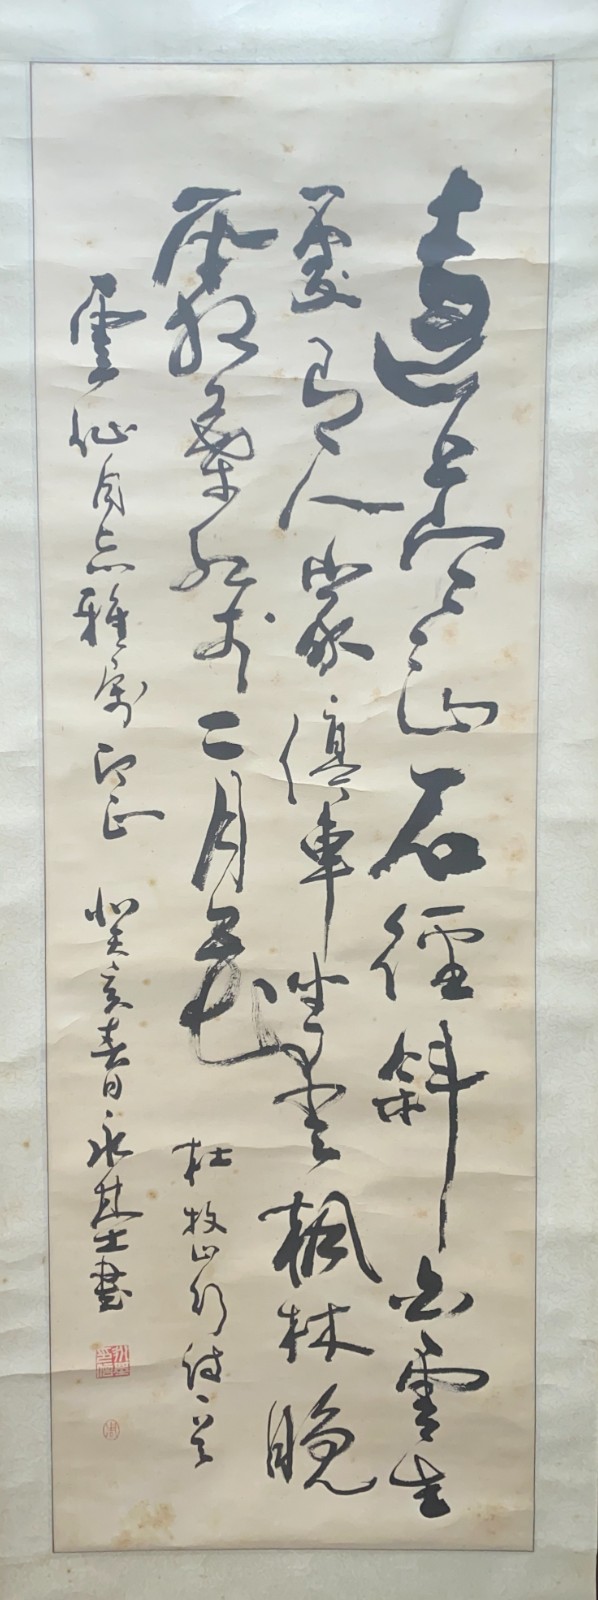 遠上寒山石徑斜白雲生
處有人家停車坐愛楓林晚
霜葉紅於二月花
杜牧山行詩一首
雲仙同志雅属即正 癸亥春日永基書